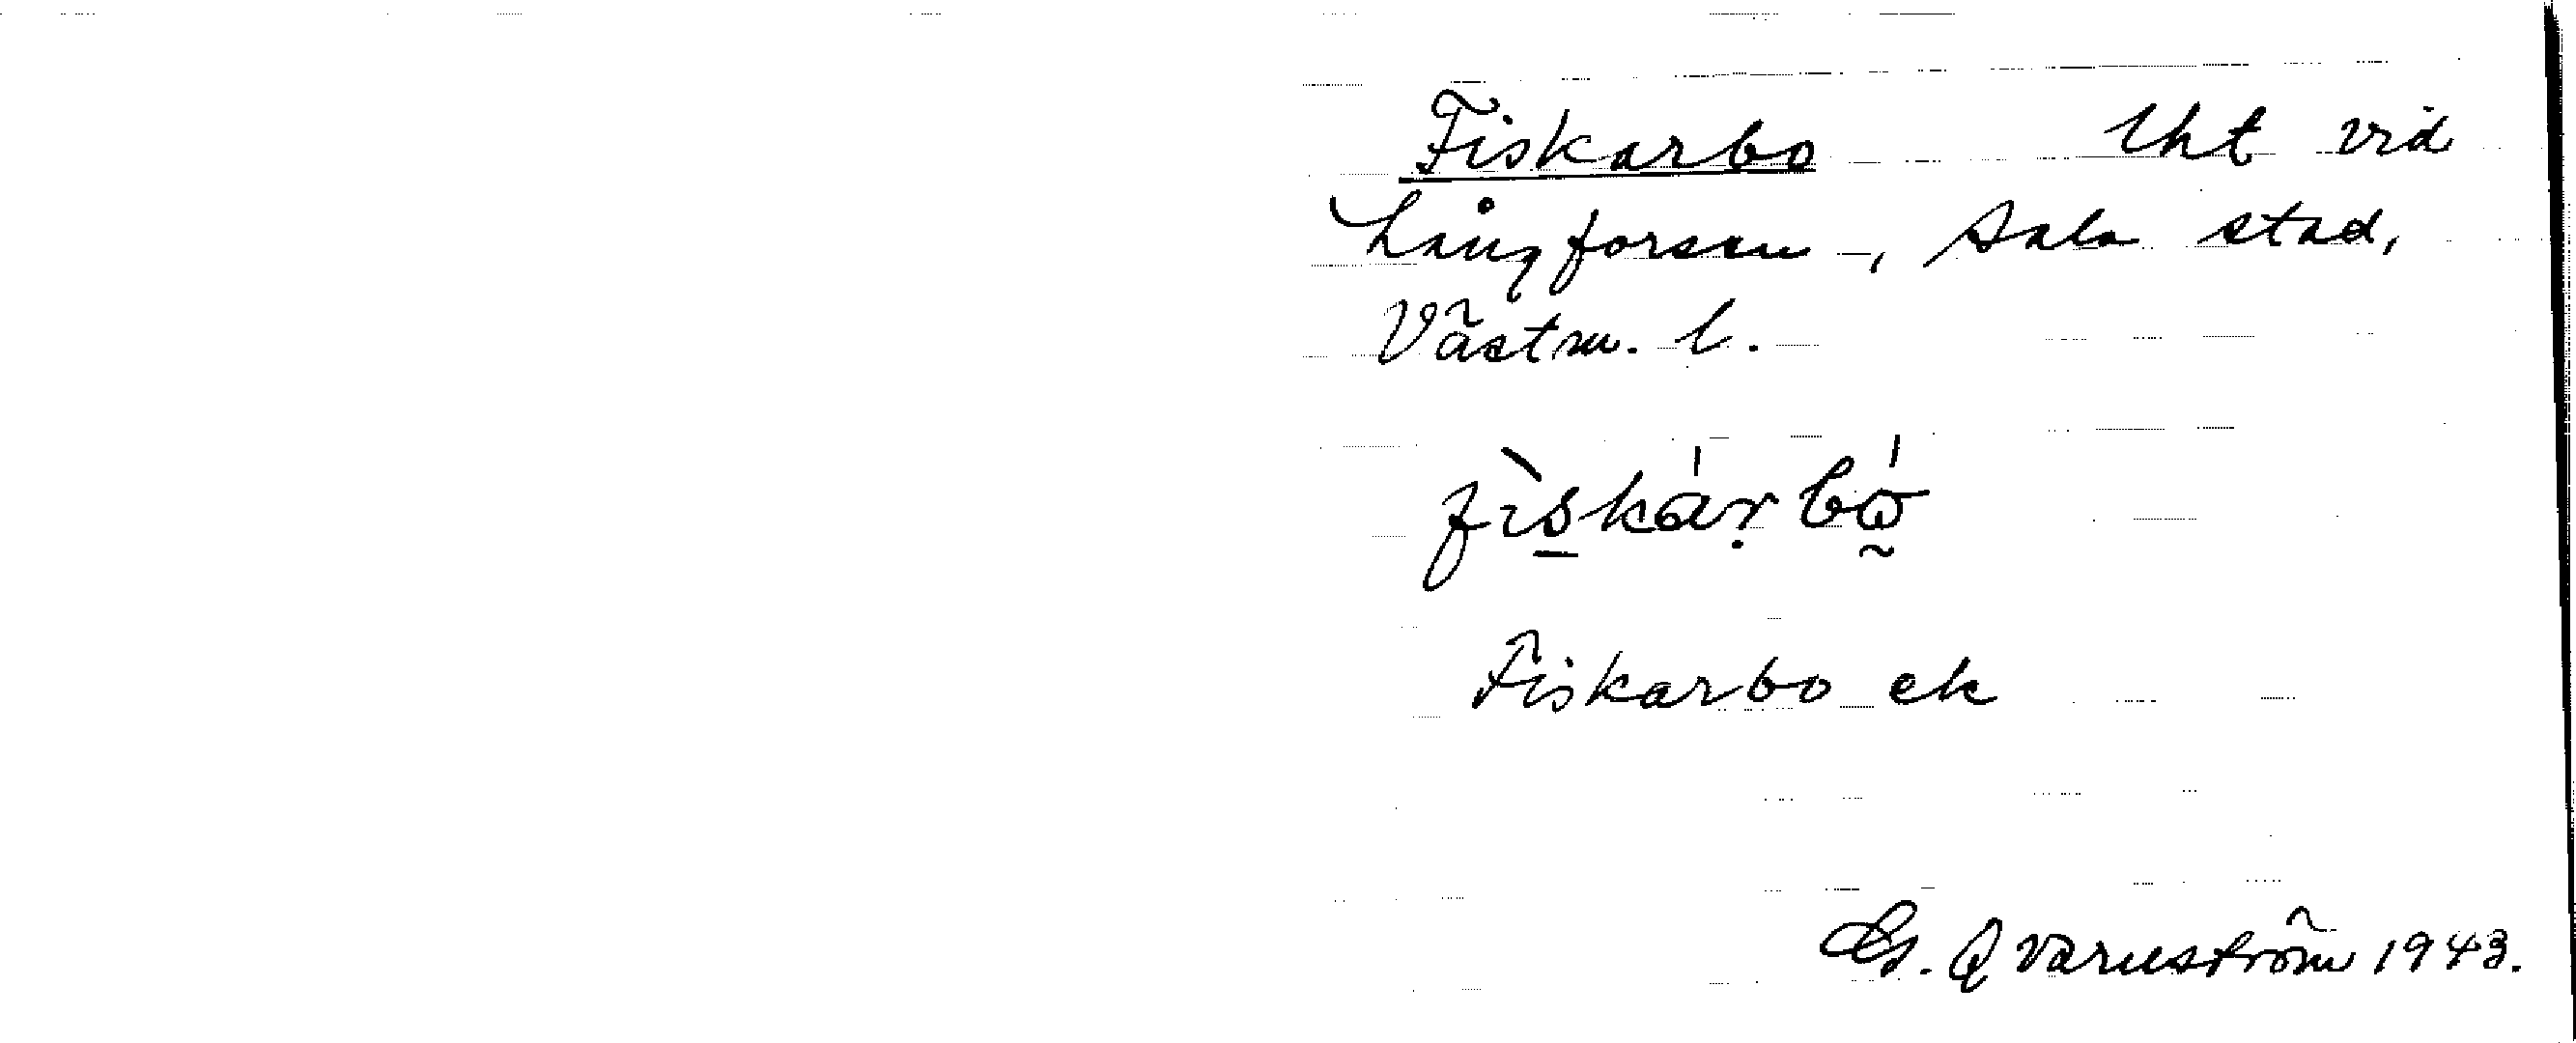 Fiskarbo lht vid
Långforsen, Sala stad,
Västm. l.
fìskárbó
Fiskarbo ek
Gs. Qvarnström 1943.